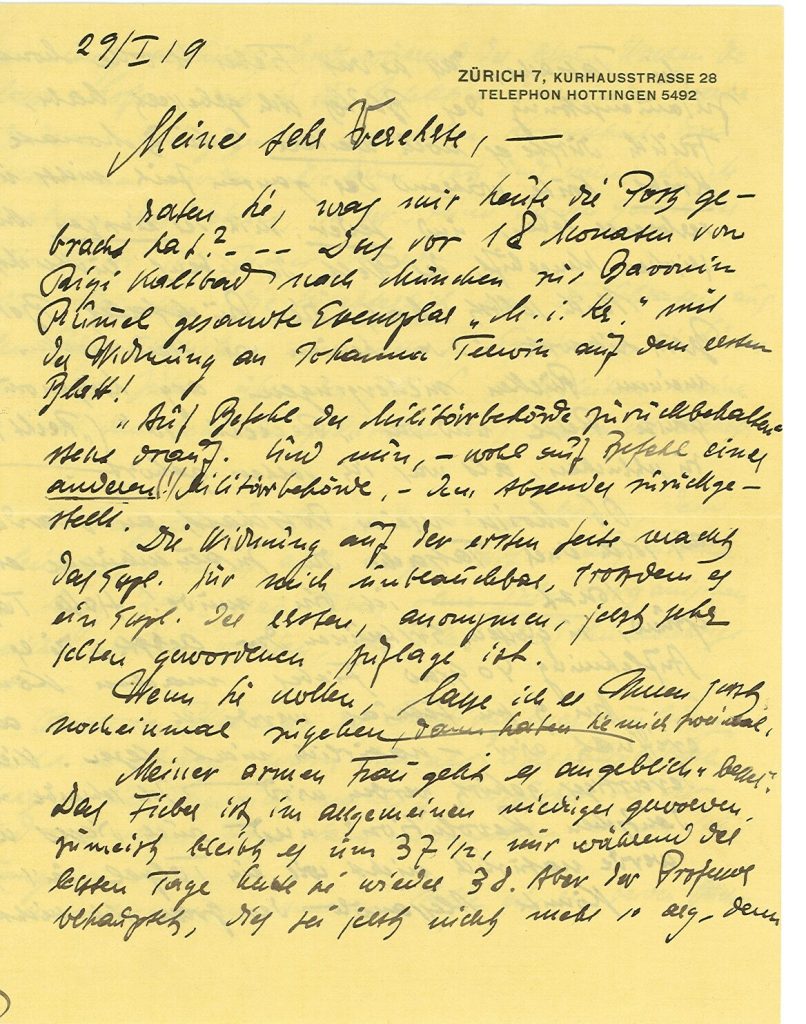 29/I 19
ZÜRICH 7, KURHAUSSTRASSE 28
TELEPHON HOTTINGEN 5492
Meine sehr Verehrte, —
raten Sie, was mir heute die Post ge-
bracht hat? - - - Das vor 18 Monaten von
Rigi Kaltbad nach München via Baronin
gesandte Exemplar „M. i. Kr." mit
der Widmung an Johanna Terwin auf dem ersten
Blatt!
„Auf Befehl der Militärbehörde zurückbehalten"
steht drauf. Und nun, – wohl auf Befehl einer
anderen (!) Militärbehörde, – dem Absender zurückge-
stellt.
Die Widmung auf der ersten Seite macht
das Expl. für mich unbrauchbar, trotzdem es
ein Expl. der ersten, anonymen, jetzt sehr
selten gewordenen Auflage ist.
Wenn Sie wollen, lasse ich es Ihnen jetzt
nocheinmal zugehen, dann haben Sie mich zweimal.
Meiner armen Frau geht es angeblich „besser".
Das Fieber ist im allgemeinen niedriger geworden,
zumeist bleibt es um 37 1/2, nur während der
letzten Tage hatte sie wieder 38. Aber der Professor
behauptet, dies sei jetzt nicht mehr so arg, denn